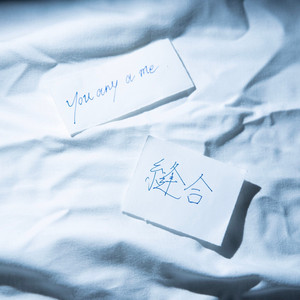 You any a me.
缝合